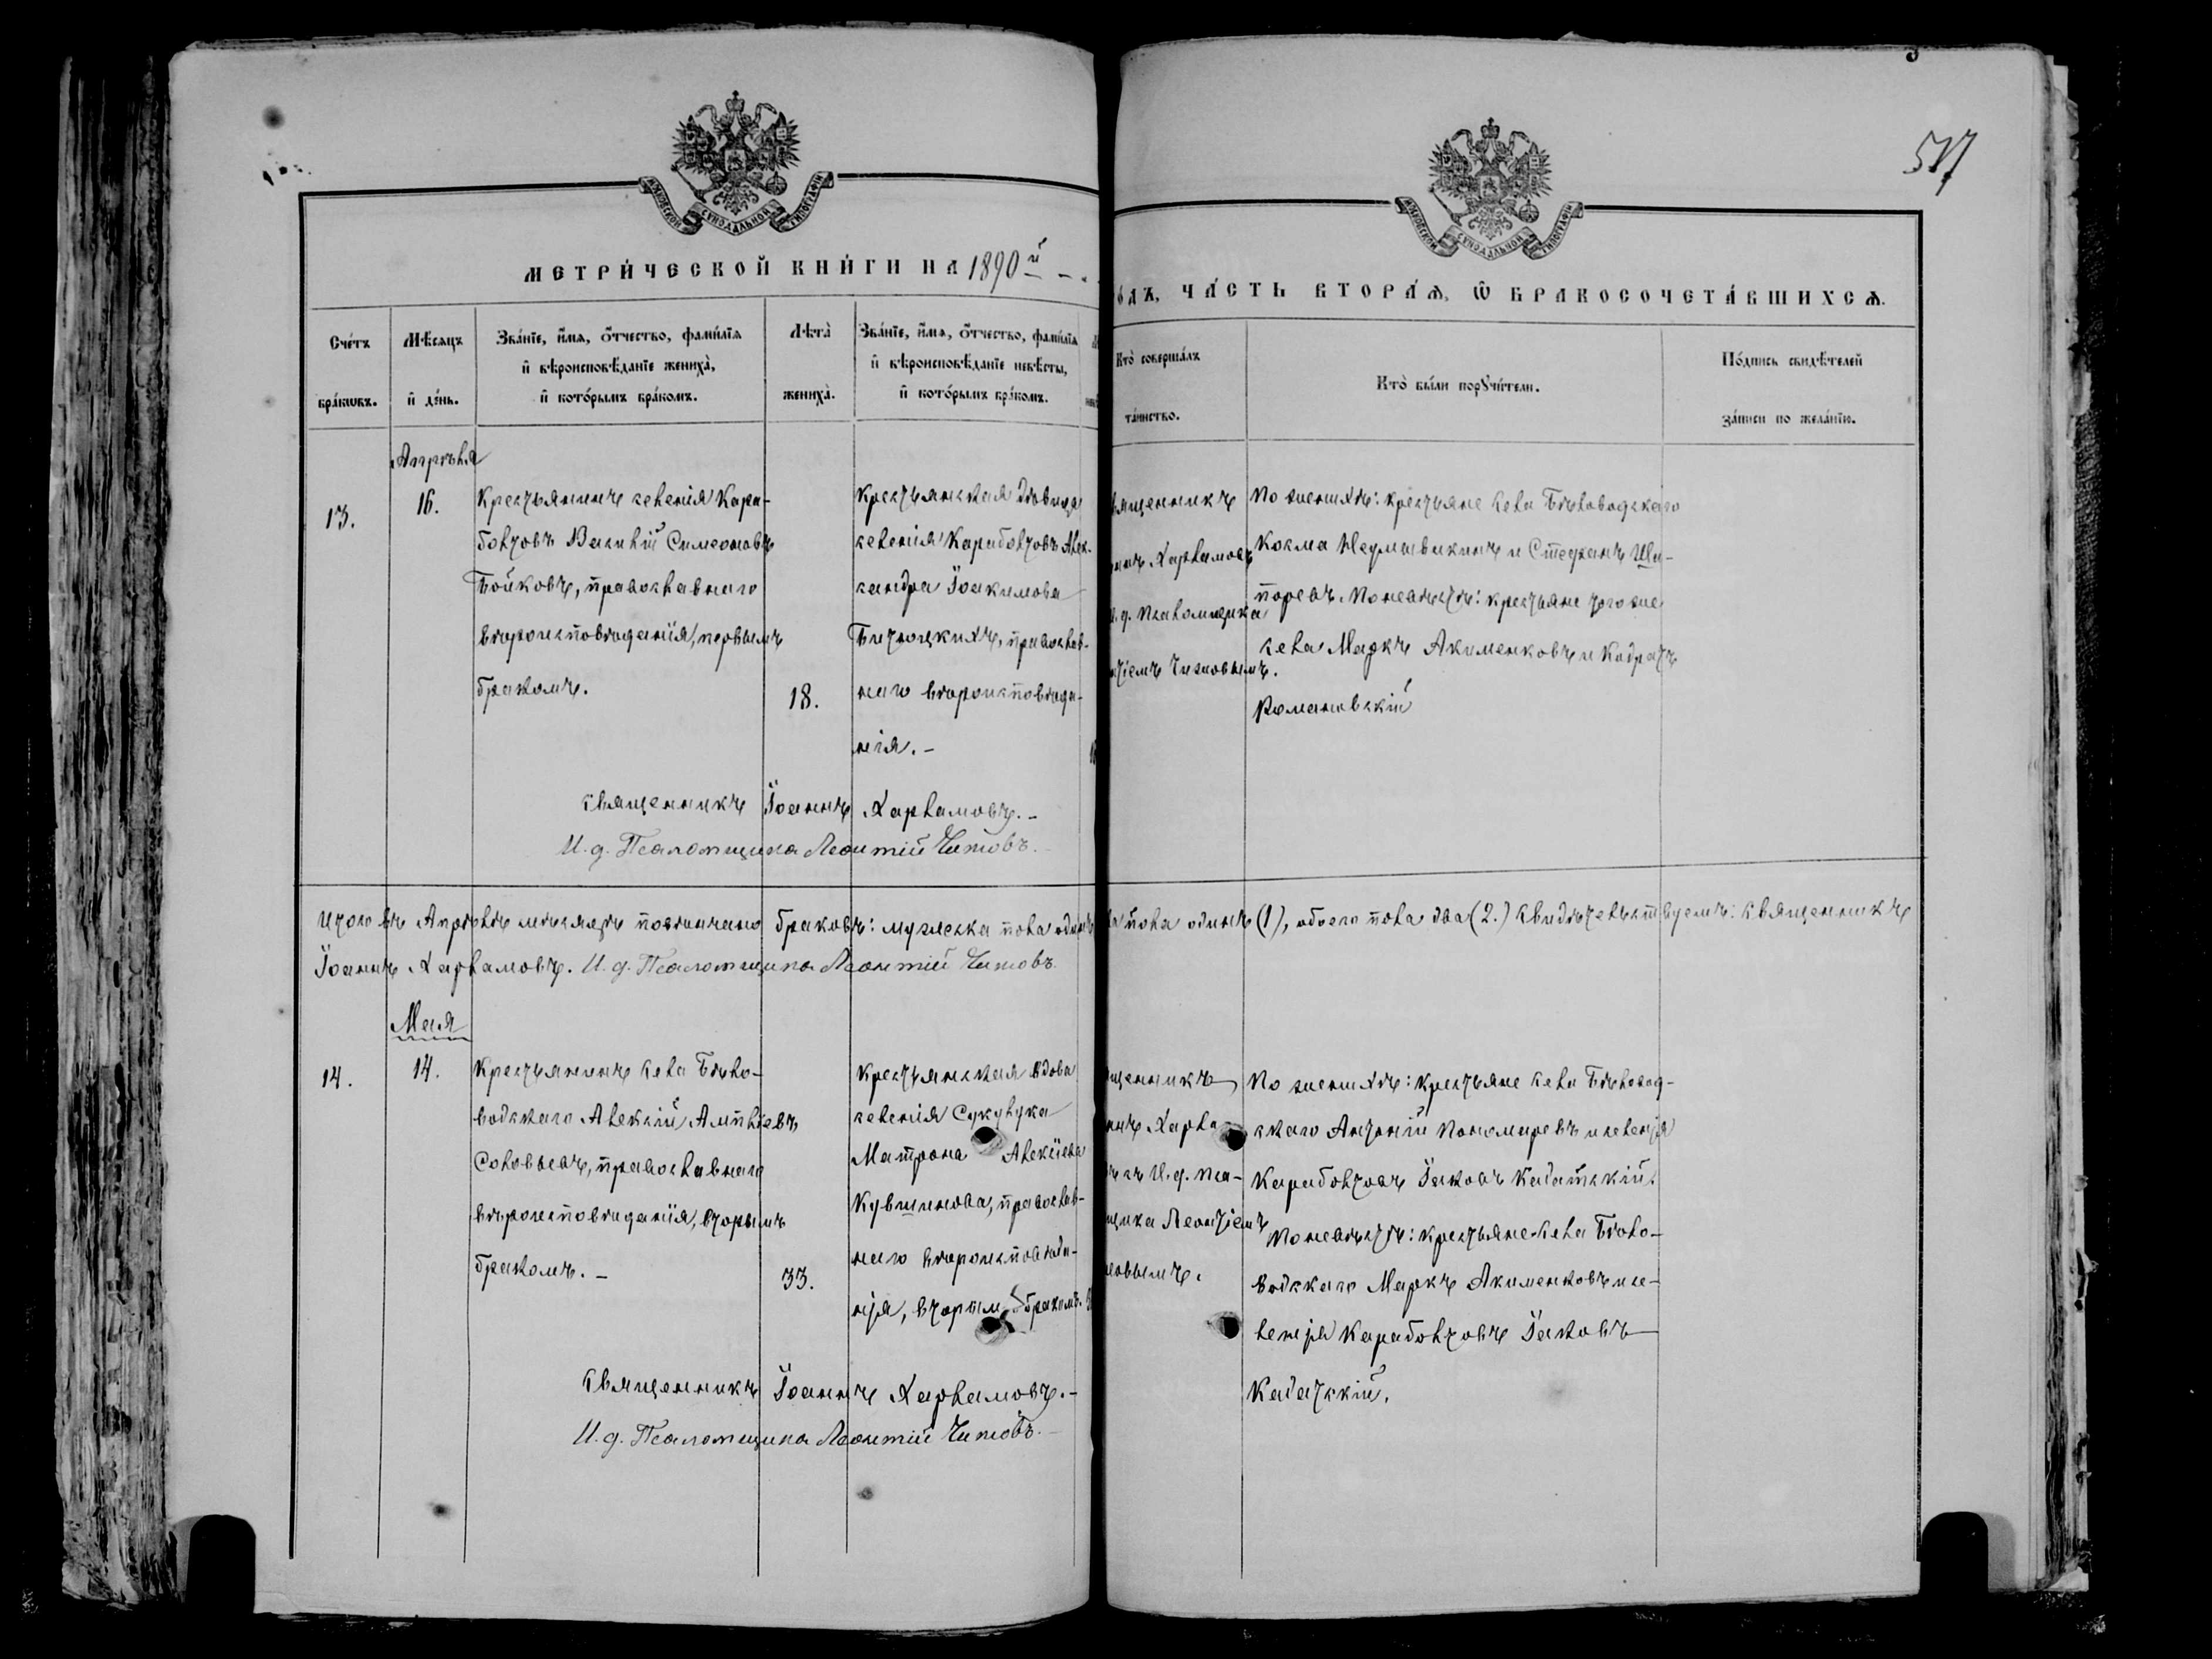 517
МОСКОВСКОЙ СѴНОДАЛЬНОЙ ТИПОГРАФІИ
МОСКОВСКОЙ СѴНОДАЛЬНОЙ ТИПОГРАФІИ
МЕТРИ́ЧЕСКОЙ КНИ́ГИ НА 1890й
ГО́ДЪ, ЧА́СТЬ ВТОРА́Ѧ, Ѡ҆ БРАКОСОЧЕТА́ВШИХСѦ.
Сче́тъ бра́кѡвъ.
Мѣ́сѧцъ и҆ де́нь.
Зва́нїе, и҆́мѧ, ѻ҆́тчество, фами́лїѧ
и҆ вѣроисповѣ́данїе жениха̀,
и҆ кото́рымъ бра́комъ.
Лѣта̀ жениха̀.
Зва́нїе, и҆́мѧ, ѻ҆́тчество, фами́лїѧ
и҆ вѣроисповѣ́данїе невѣ́сты,
и҆ кото́рымъ бра́комъ.
Кто̀ соверша́лъ
та́инство.
Кто̀ бы́ли порꙋчи́тели.
По́дпись свидѣ́телей
за́писи по жела́нїю.
Апрѣля
13.
16.
Крестьянинъ селенія Кара-
болтовъ Василій Симеоновъ
Бойковъ, православнаго
вѣроисповѣданія, первымъ
бракомъ.
18.
Крестьянская дѣвица
селенія Караболтовъ Алек-
сандра Іоакимова
православ-
наго вѣроисповѣда-
нія.-
священникъ
Харламовъ
И. д. псаломщика
Титовымъ.
По женихѣ: крестьяне села Бѣловодскаго
Косма и Стефанъ Ша-
поревъ. По невѣстѣ: крестьяне того же
села Маркъ Акименковъ и Кодратъ
Романовскій
Священникъ Іоаннъ Харламовъ.-
И. д. Псаломщика Леонтій Титовъ.
Итого въ Апрѣлѣ мѣсяцѣ повѣнчано браковъ: мужеска пола одинъ
пола одинъ (1), обоего пола два (2.) Свидѣтельствуемъ: Священникъ
Іоаннъ Харламовъ. И. д. Псаломщика Леонтій Титовъ.
Мая
14.
14.
Крестьянинъ села Бѣло-
водскаго Алексій Ампліевъ
Соловьевъ, православнаго
вѣроисповѣданія, вторымъ
бракомъ.-
33.
Крестьянская вдова
селенія Сукулука
Матрона Алексіева
Кувшинова, православ-
наго вѣроисповѣда-
нія, вторымъ бракомъ.
священникъ
Харла-
И. д. пса-
ломщика Леонтіемъ
Титовымъ.
По женихѣ: крестьяне села Бѣловод-
скаго Антоній Пономаревъ и селенія
Караболтовъ Іаковъ Кадатскій.
По невѣстѣ: крестьяне села Бѣло-
водскаго Маркъ Акименковъ и се-
ленія Караболтовъ Іаковъ
Кадатскій.
Священникъ Іоаннъ Харламовъ.-
И. д. Псаломщика Леонтій Титовъ.